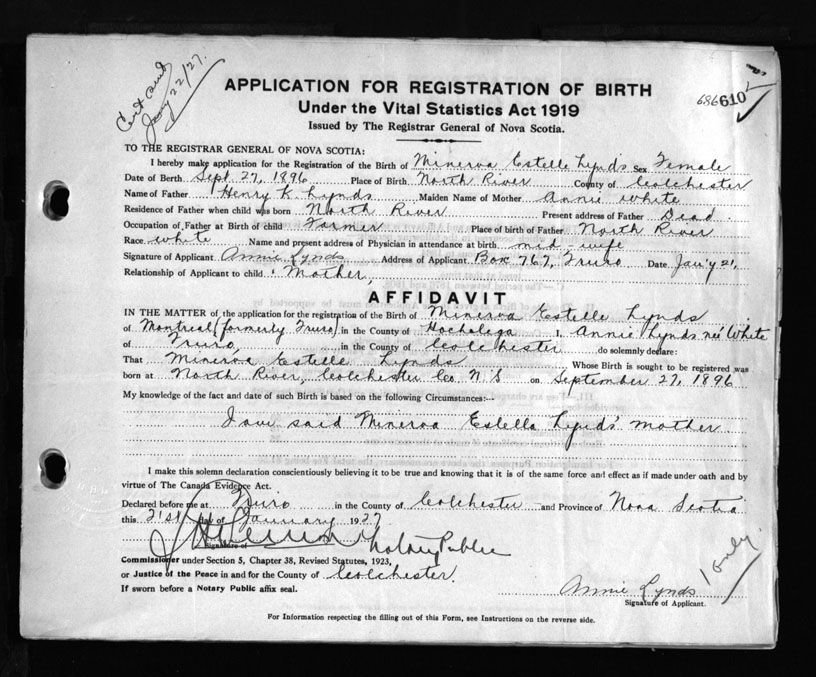 Cert sent
Jany 22/27.
686610
APPLICATION FOR REGISTRATION OF BIRTH
Under the Vital Statistics Act 1919
Issued by The Registrar General of Nova Scotia.
TO THE REGISTRAR GENERAL OF NOVA SCOTIA:
I hereby make application for the Registration of the Birth of Minerva Estelle Lynds Sex Female
Date of Berth Sept. 27, 1896 Place of Birth North River County of Colchester
Name of Father Henry K. Lynds Maiden Name of Mother Annie White
Residence of Father when child was born North River Present address of Father Dead.
Occupation of Father at Birth of child Farmer Place of birth of Father North River
Race White Name and present address of Physician in attendance at birth mid-wife
Signature of Applicant Annie Lynds Address of Applicant Box 767, Truro Date Jan'y 21,
Relationship of Applicant to child Mother,
AFFIDAVIT
IN THE MATTER of the application for the registration of the Birth of Minerva Estelle Lynds
of Montreal (formerly Truro) in the County of Hochalaga I, Annie Lynds neé White
of Truro, in the County of Colchester do solemnly declare:
That Minerva Estelle Lynds Whose Birth is sought to be registered was
born at North River, Colchester Co. N.S on September 27, 1896
My knowledge of the fact and date of such Birth is based on the following Circumstances:—
I am said Minerva Estella Lynds' mother.
I make this solemn declaration conscientiously believing it to be true and knowing that it is of the same force and effect as if made under oath and by
virtue of The Canada Evidence Act.
Declared before me at Truro in the County of Colchester and Province of Nova Scotia
this 21st day of January 1927
Signature of Notary Public
Commissioner under Section 5, Chapter 38, Revised Statutes, 1923,
or Justice of the Peace in and for the County of Colchester.
If sworn before a Notary Public affix seal.
Annie Lynds
1 only.
Signature of Applicant.
For Information respecting the filling out of this Form, see Instructions on the reverse side.